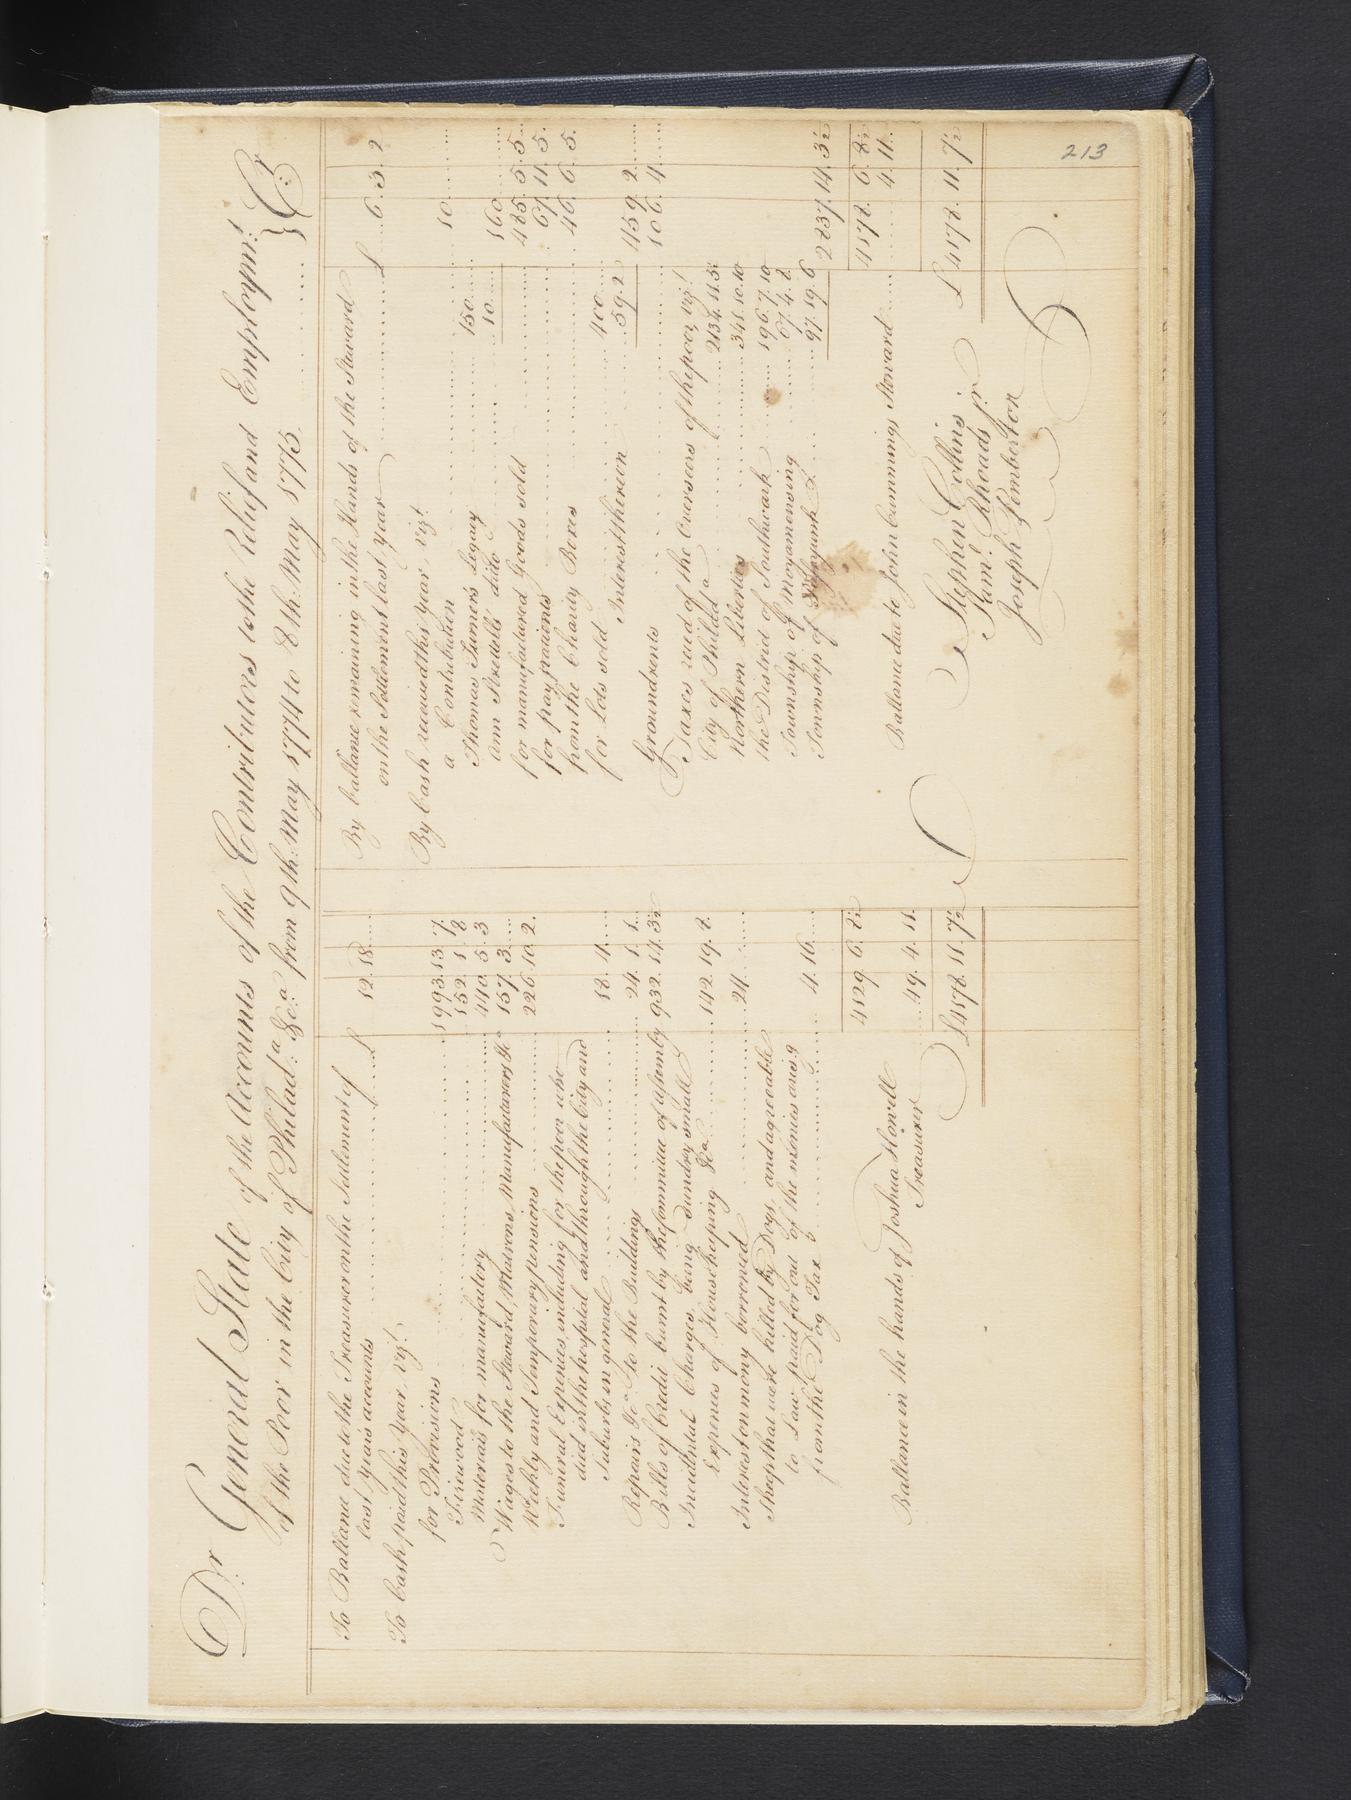 Dr General State of the Accounts of the Contributors to the Relief and Employmt. } Cr
of the Poor in the City of Philada. &ca. from 9th. May 1774 to 8th. May 1775.
To Ballance due to the Treasurer on the Settlement of
last Years accounts £ 12. 18.
To Cash paid this Year, vizt.
for Provisions 1993. 13. 7.
Firewood 552. 1. 8
Materials for manufactory 440. 5. 3
Wages to the Steward, Matrons, Manufacturers &c 157. 3.
Weekly and Temporary pensions 226. 10. 2.
Funeral Expences including for the poor who
died in the hospital and through the City and
Suburbs in general 18. 4.
Repairs &ca. to the Buildings 24. 1. 1.
Bills of Credit burnt by the Committee of assembly 932. 14. 3½
Incidental Charges, being sundry small
expences of Housekeeping &ca. 142. 19. 8.
Interest on mony borrowed 24.
Sheep that were killed by Dogs, and agreeable
to Law paid for out of the monies arisg.
from the Dog Tax 4. 16.
4529. 6. 8½
Ballance in the hands of Joshua Howell
Treasurer 49. 4. 11.
£ 4578. 11. 7½
By ballance remaining in the Hands of the Steward
on the Settlement last year £ 6. 3. 2
By Cash received this Year, vizt.
a Contribution 10.
Thomas Turner's Legacy 150.
Ann Strettells ditto 10. 160.
for manufactured Goods sold 485. 5. 5.
for pay patients 67. 11. 5.
from the Charity Boxes 46. 6. 5.
for Lots sold 400.
Interest thereon 59. 2 459. 2.
Groundrents 506. 4.
Taxes reced of the Overseers of the poor, vizt.
City of Philada. 2134. 11. 3½
Northern Liberties 341. 10. 10
the District of Southwark 196. 7. 10
Township of Moyamensing 67. 4. 2.
Township of Passyunk £ 97. 19. 6 2837. 14. 3½
4578. 6. 8½
Ballance due to John Cummings Steward 4. 11.
£ 4578. 11. 7½
Stephen Collins
Saml. Rhoads jr.
Joseph Pemberton
213